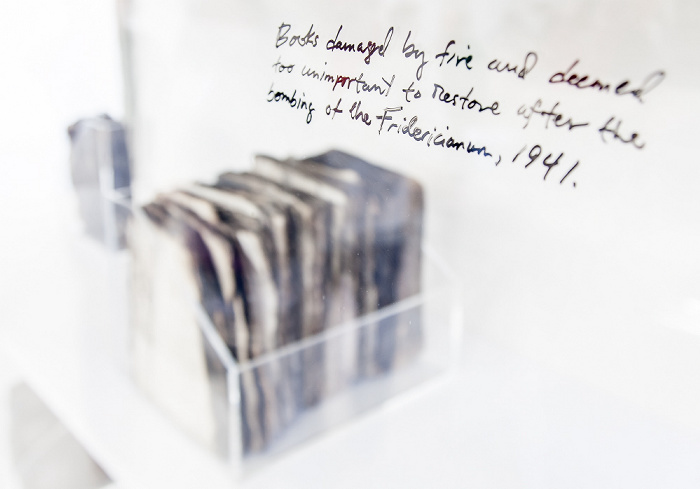 Books damaged by fire and deemed
too unimportant to restore after the
bombing of the Fridericianum, 1941.